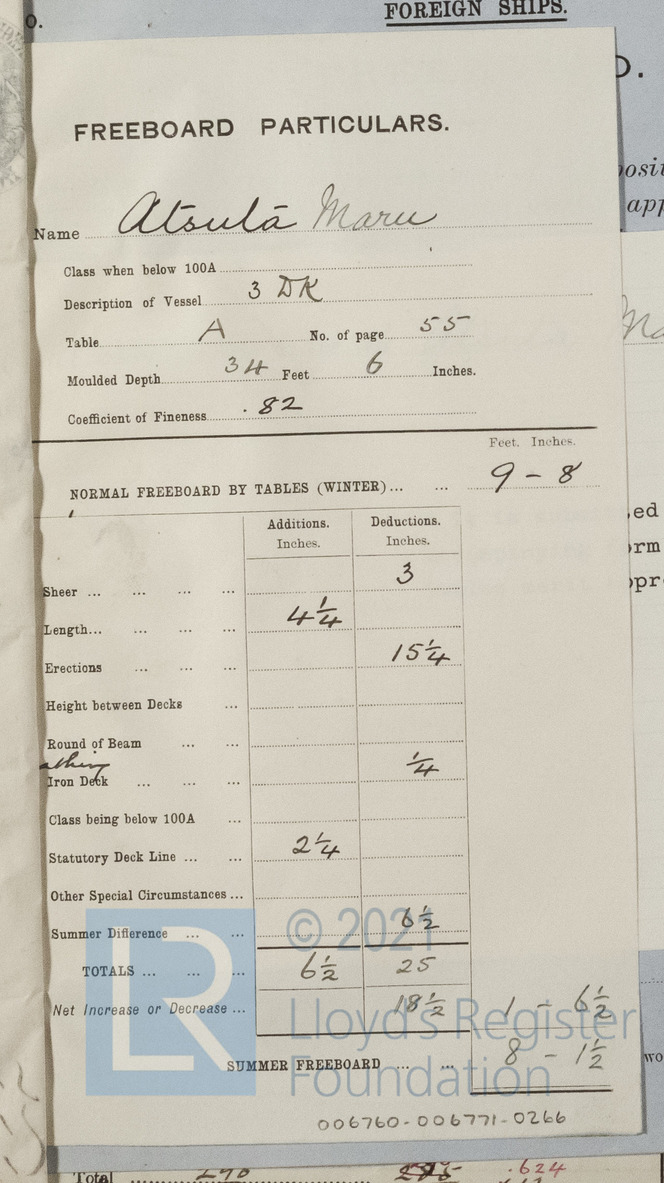 O.
FOREIGN SHIPS.
D.
FREEBOARD PARTICULARS.
Name Atsutā Maru
Class when below 100A
Description of Vessel 3 DK
Table A No. of page 55
Moulded Depth 34 Feet 6 Inches.
Coefficient of Fineness .82
Feet. Inches.
NORMAL FREEBOARD BY TABLES (WINTER)... ... 9 - 8
Additions. Deductions.
Inches. Inches.
Sheer ... ... ... ... 3
Length... ... ... ... 4 1/4
Erections ... ... ... 15 1/4
Height between Decks ...
Round of Beam ... ...
Iron Deck ... ... ... 1/4
Class being below 100A ...
Statutory Deck Line ... ... 2 1/4
Other Special Circumstances ...
Summer Difference ... ... 6 1/2
TOTALS ... ... ... 6 1/2 25
Net Increase or Decrease ... 18 1/2 1 - 6 1/2
SUMMER FREEBOARD ... ... 8 - 1 1/2
© 2021
Lloyd's Register
Foundation
LR
006760-006771-0266
Total .624